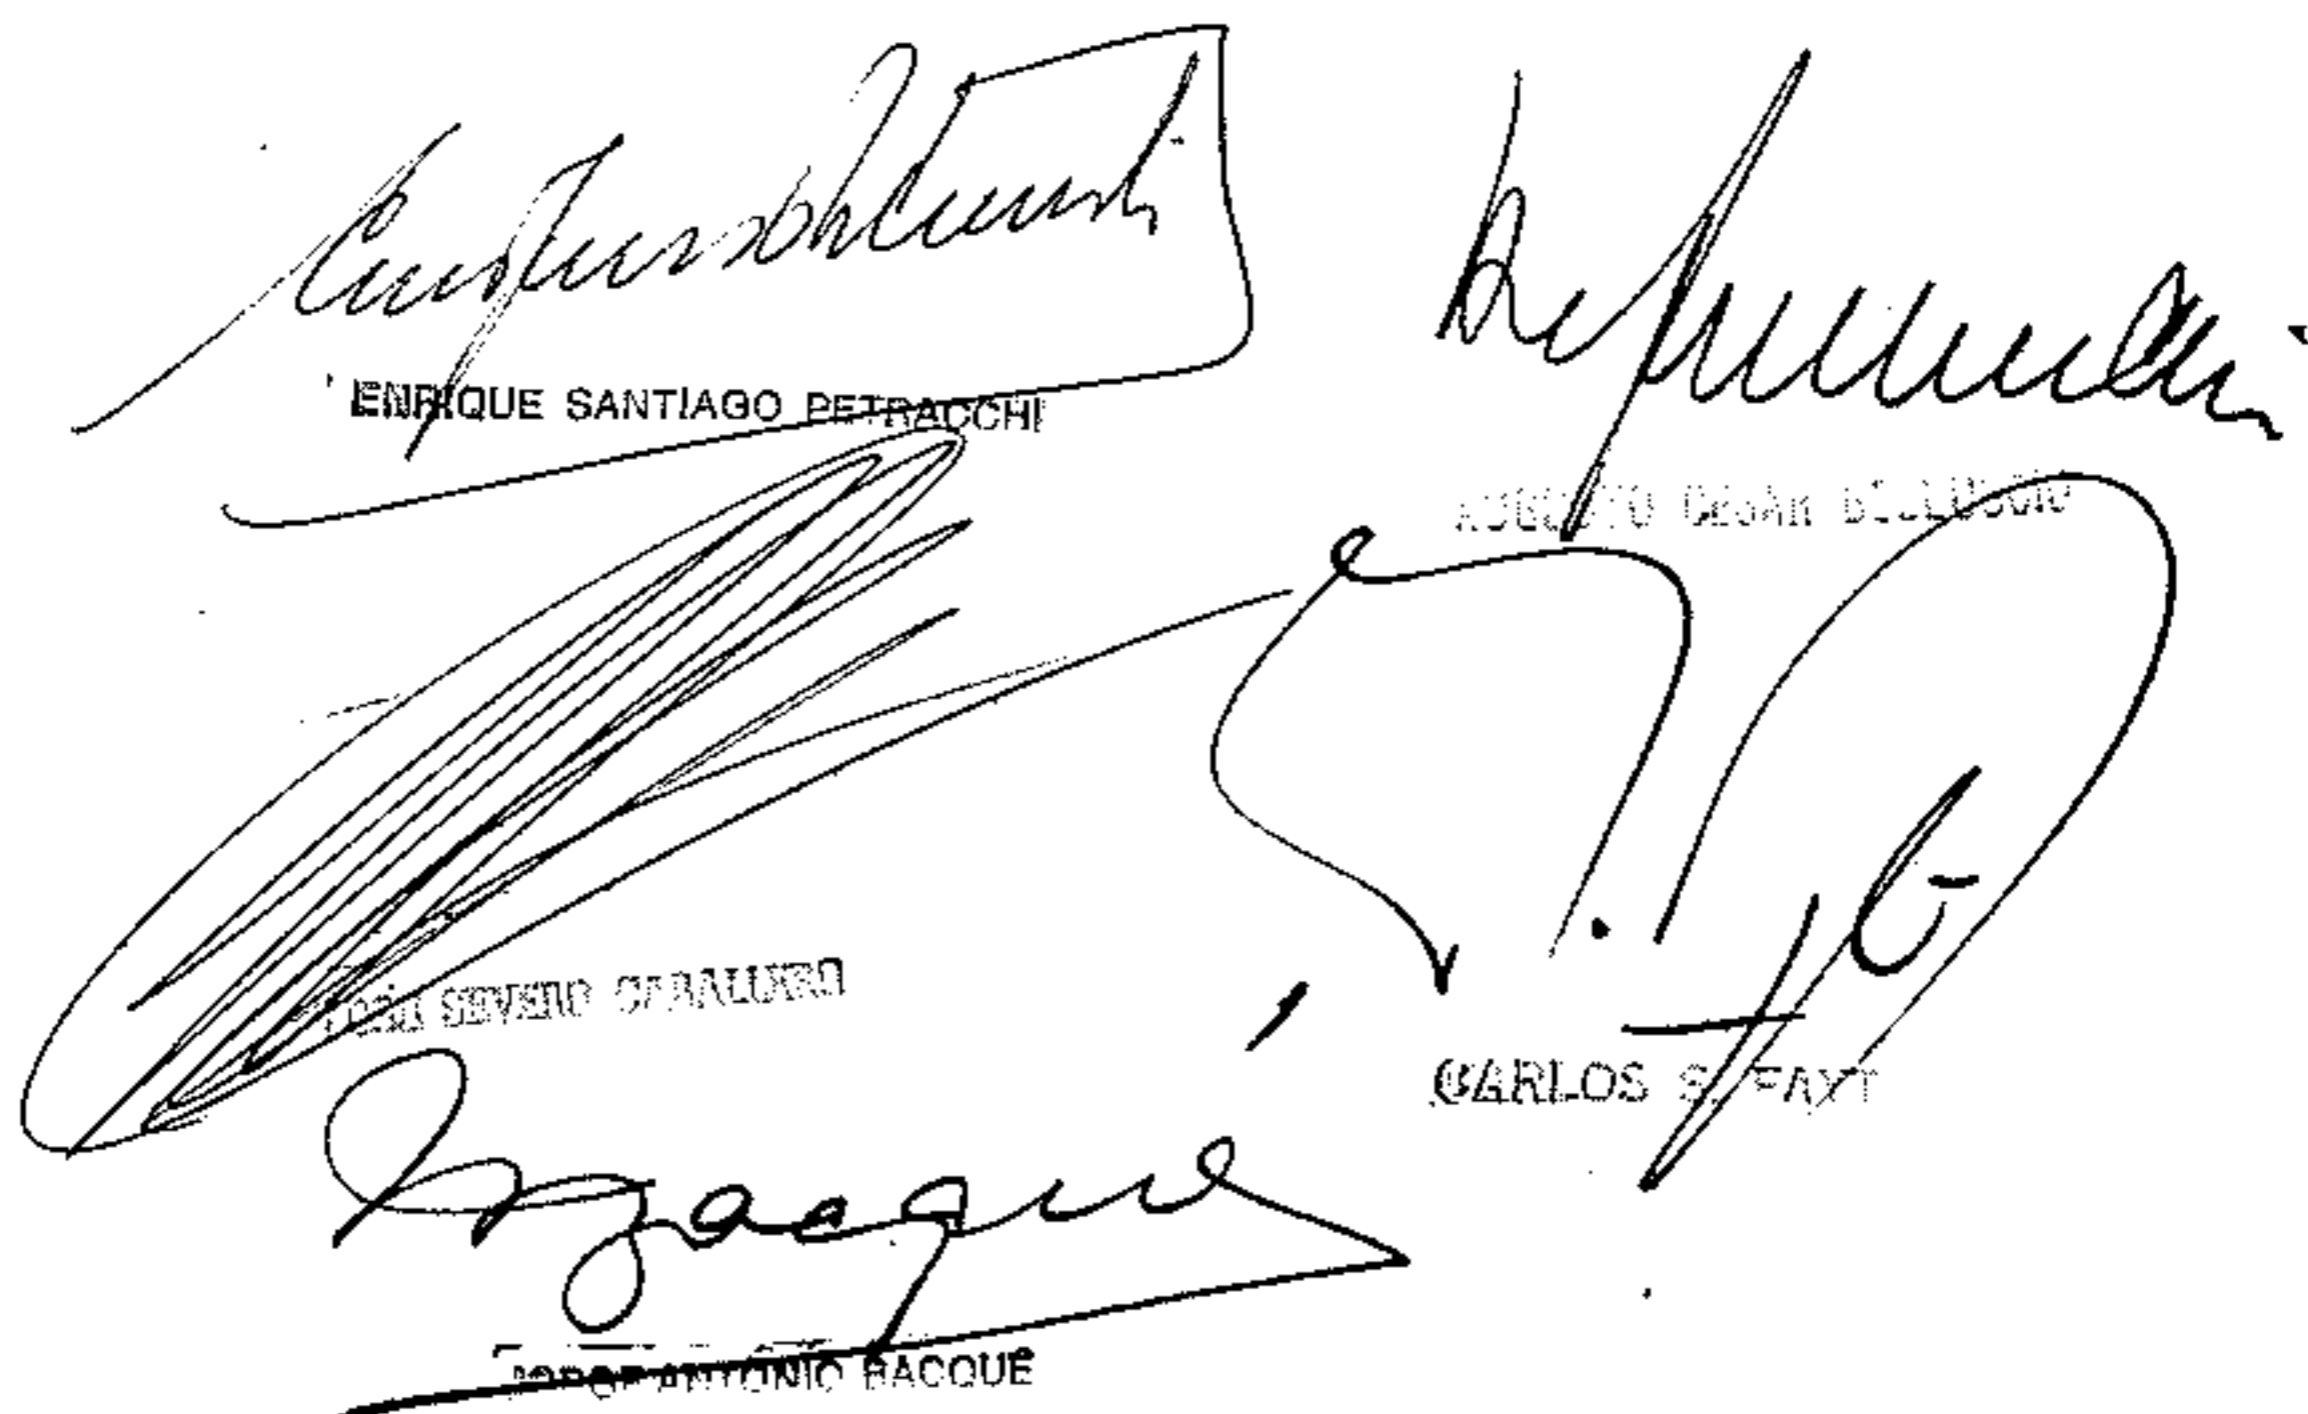 ENRIQUE SANTIAGO PETRACCHI
AUGUSTO CESAR BELLUSCIO
JOSE SEVERO CABALLERO
CARLOS S. FAYT
JORGE ANTONIO BACQUE